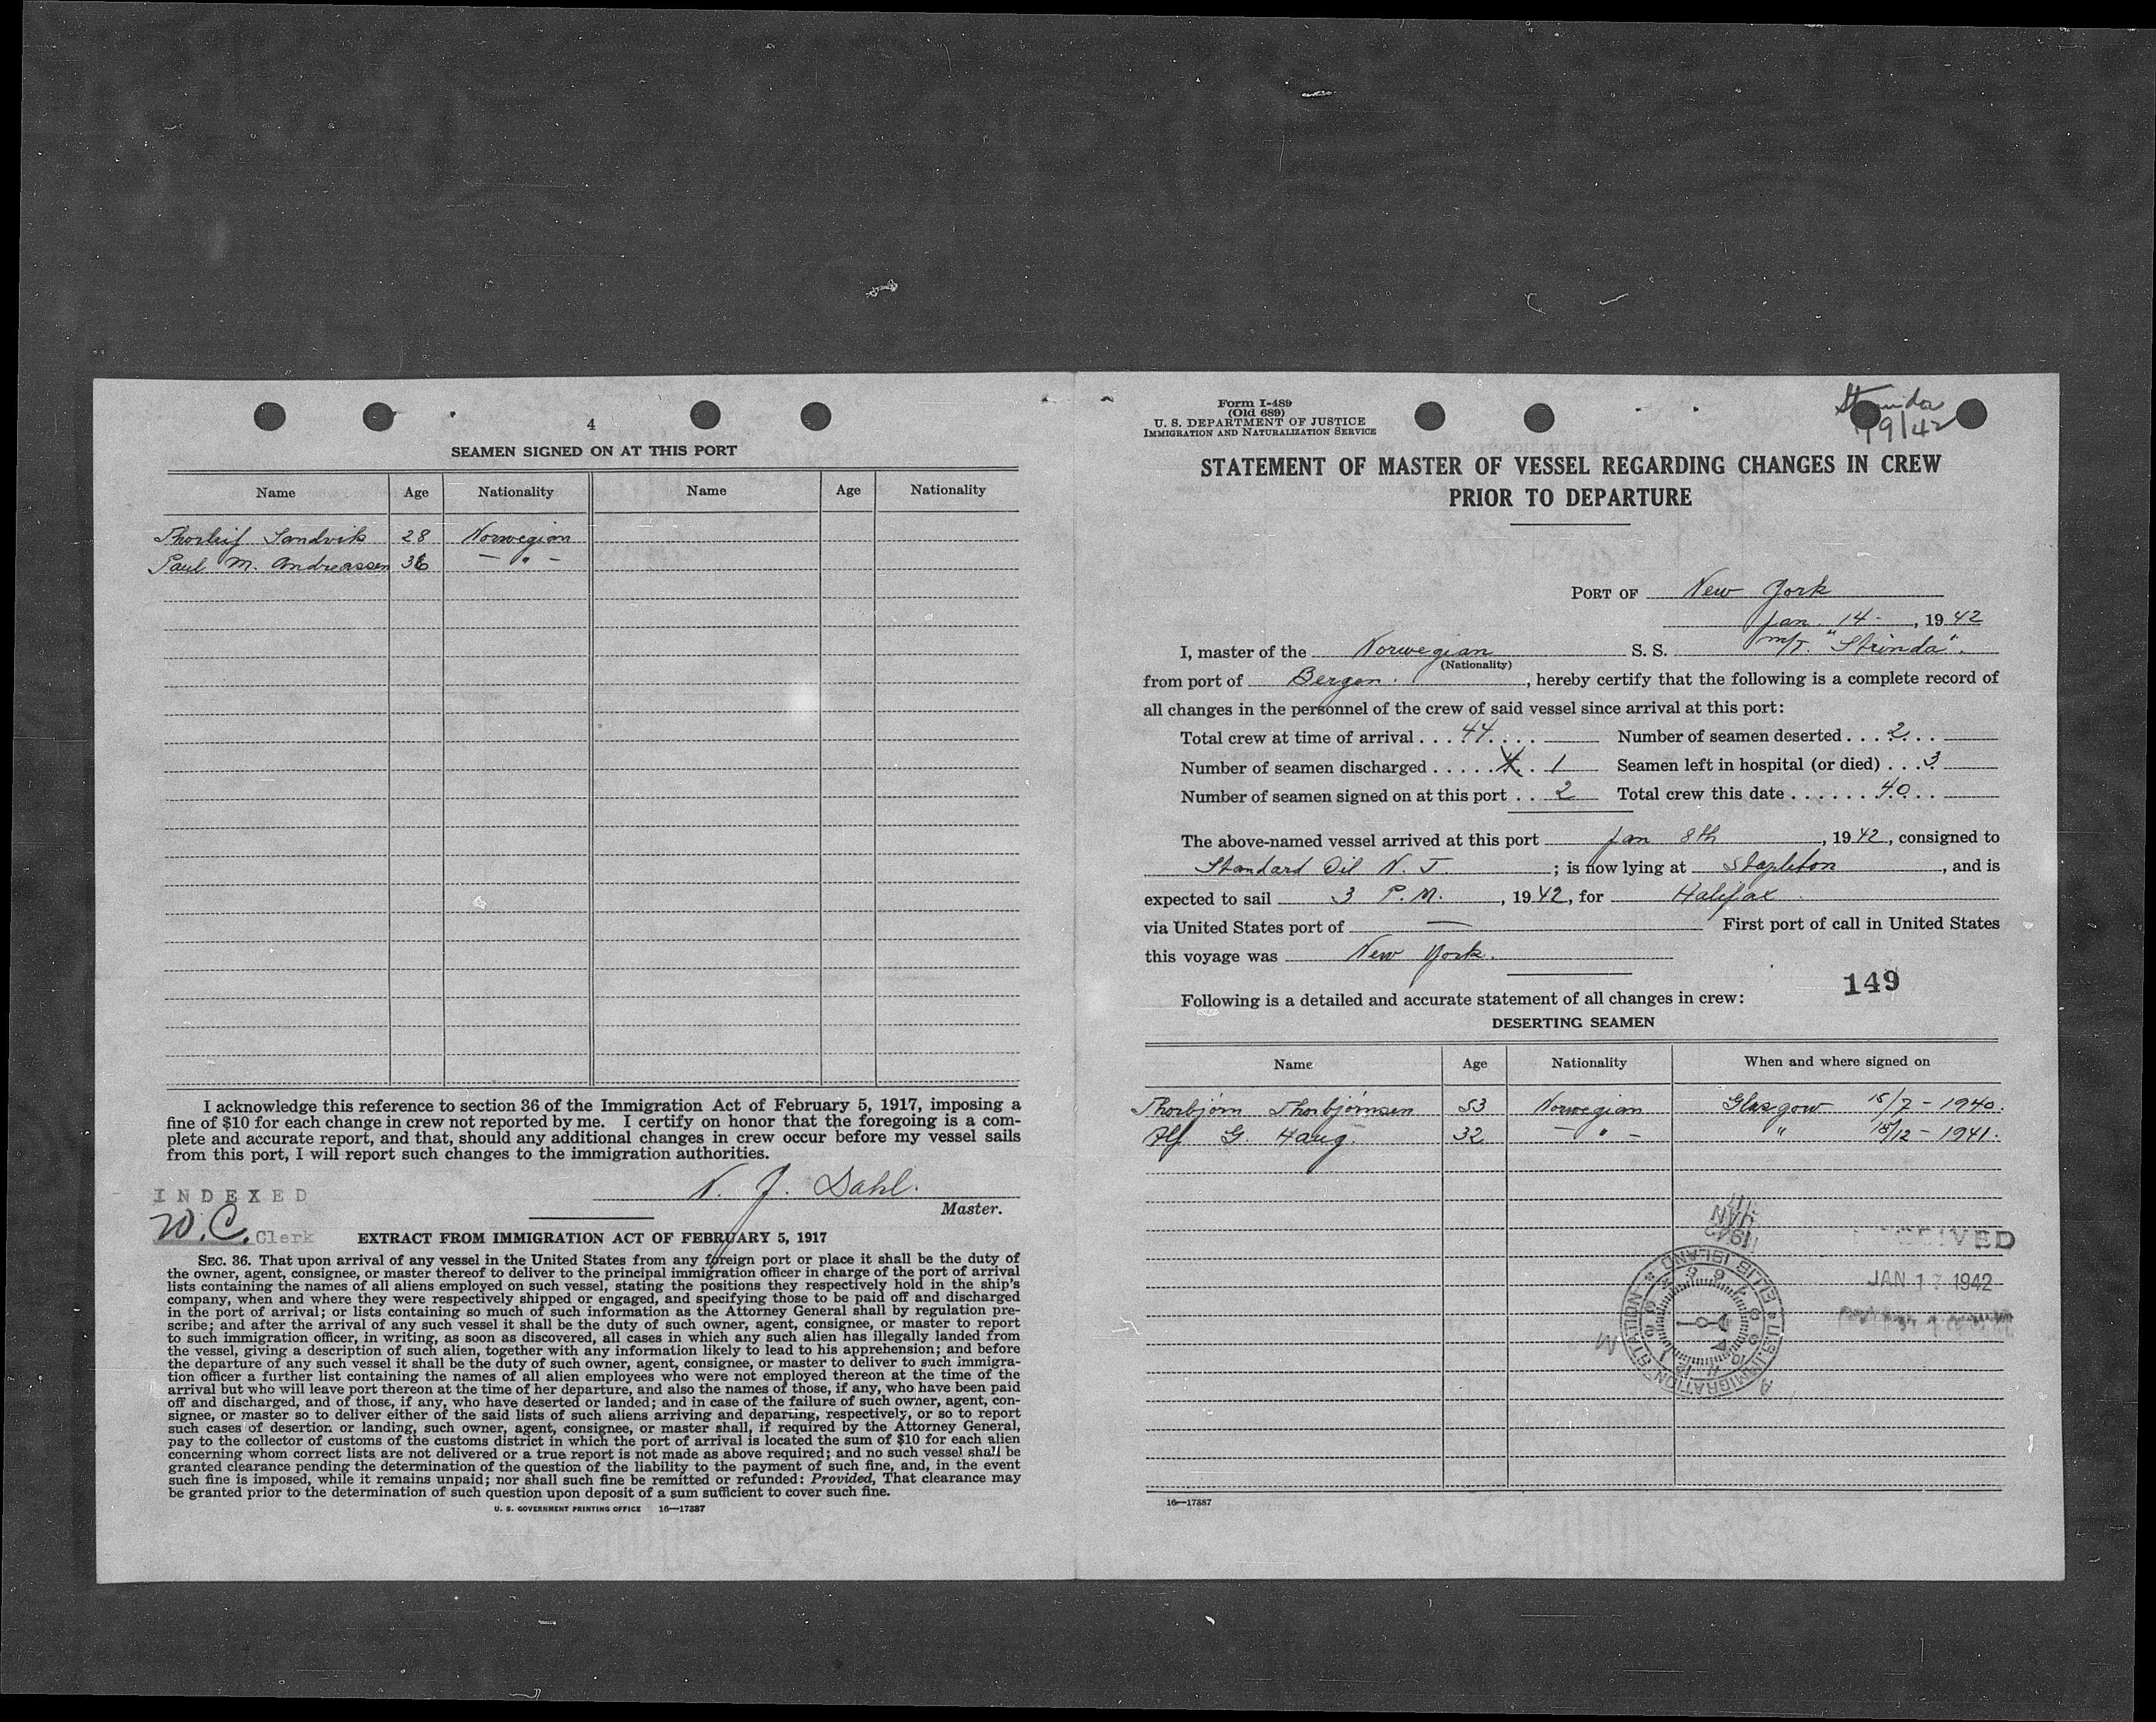 4
SEAMEN SIGNED ON AT THIS PORT
Name Age Nationality Name Age Nationality
Thorleif Sandvik 28 Norwegian
Paul M. Andreassen 36 — " —
I acknowledge this reference to section 36 of the Immigration Act of February 5, 1917, imposing a
fine of $10 for each change in crew not reported by me. I certify on honor that the foregoing is a com-
plete and accurate report, and that, should any additional changes in crew occur before my vessel sails
from this port, I will report such changes to the immigration authorities.
N. J. Dahl.
Master.
INDEXED
W.C. Clerk
EXTRACT FROM IMMIGRATION ACT OF FEBRUARY 5, 1917
SEC. 36. That upon arrival of any vessel in the United States from any foreign port or place it shall be the duty of
the owner, agent, consignee, or master thereof to deliver to the principal immigration officer in charge of the port of arrival
lists containing the names of all aliens employed on such vessel, stating the positions they respectively hold in the ship's
company, when and where they were respectively shipped or engaged, and specifying those to be paid off and discharged
in the port of arrival; or lists containing so much of such information as the Attorney General shall by regulation pre-
scribe; and after the arrival of any such vessel it shall be the duty of such owner, agent, consignee, or master to report
to such immigration officer, in writing, as soon as discovered, all cases in which any such alien has illegally landed from
the vessel, giving a description of such alien, together with any information likely to lead to his apprehension; and before
the departure of any such vessel it shall be the duty of such owner, agent, consignee, or master to deliver to such immigra-
tion officer a further list containing the names of all alien employees who were not employed thereon at the time of the
arrival but who will leave port thereon at the time of her departure, and also the names of those, if any, who have been paid
off and discharged, and of those, if any, who have deserted or landed; and in case of the failure of such owner, agent, con-
signee, or master so to deliver either of the said lists of such aliens arriving and departing, respectively, or so to report
such cases of desertion or landing, such owner, agent, consignee, or master shall, if required by the Attorney General,
pay to the collector of customs of the customs district in which the port of arrival is located the sum of $10 for each alien
concerning whom correct lists are not delivered or a true report is not made as above required; and no such vessel shall be
granted clearance pending the determination of the question of the liability to the payment of such fine, and, in the event
such fine is imposed, while it remains unpaid; nor shall such fine be remitted or refunded: Provided, That clearance may
be granted prior to the determination of such question upon deposit of a sum sufficient to cover such fine.
U. S. GOVERNMENT PRINTING OFFICE 16—17387
Form I-489
(Old 689)
U. S. DEPARTMENT OF JUSTICE
IMMIGRATION AND NATURALIZATION SERVICE
Strinda
STATEMENT OF MASTER OF VESSEL REGARDING CHANGES IN CREW
PRIOR TO DEPARTURE
PORT OF New York
Jan. 14 - , 19 42
I, master of the Norwegian S. S. M/T. "Strinda".
(Nationality)
from port of Bergen. , hereby certify that the following is a complete record of
all changes in the personnel of the crew of said vessel since arrival at this port:
Total crew at time of arrival . . . 44 . . . . Number of seamen deserted . . . 2 . . .
Number of seamen discharged . . . . . 1 Seamen left in hospital (or died) . . . 3
Number of seamen signed on at this port . . 2 Total crew this date . . . . . . . 40 . . .
The above-named vessel arrived at this port Jan 8th , 19 42, consigned to
Standard Oil N. J. ; is now lying at Stapleton , and is
expected to sail 3 P.M. , 19 42, for Halifax
via United States port of — First port of call in United States
this voyage was New York.
149
Following is a detailed and accurate statement of all changes in crew:
DESERTING SEAMEN
Name Age Nationality When and where signed on
Thorbjørn Thorbjørnsen 53 Norwegian Glasgow 15/7 - 1940.
Alf G. Haug. 32 — " — " 18/12 - 1941.
1942
JAN
U.S. IMMIGRATION STATION ELLIS ISLAND
RECEIVED
JAN 17 1942
16—17387